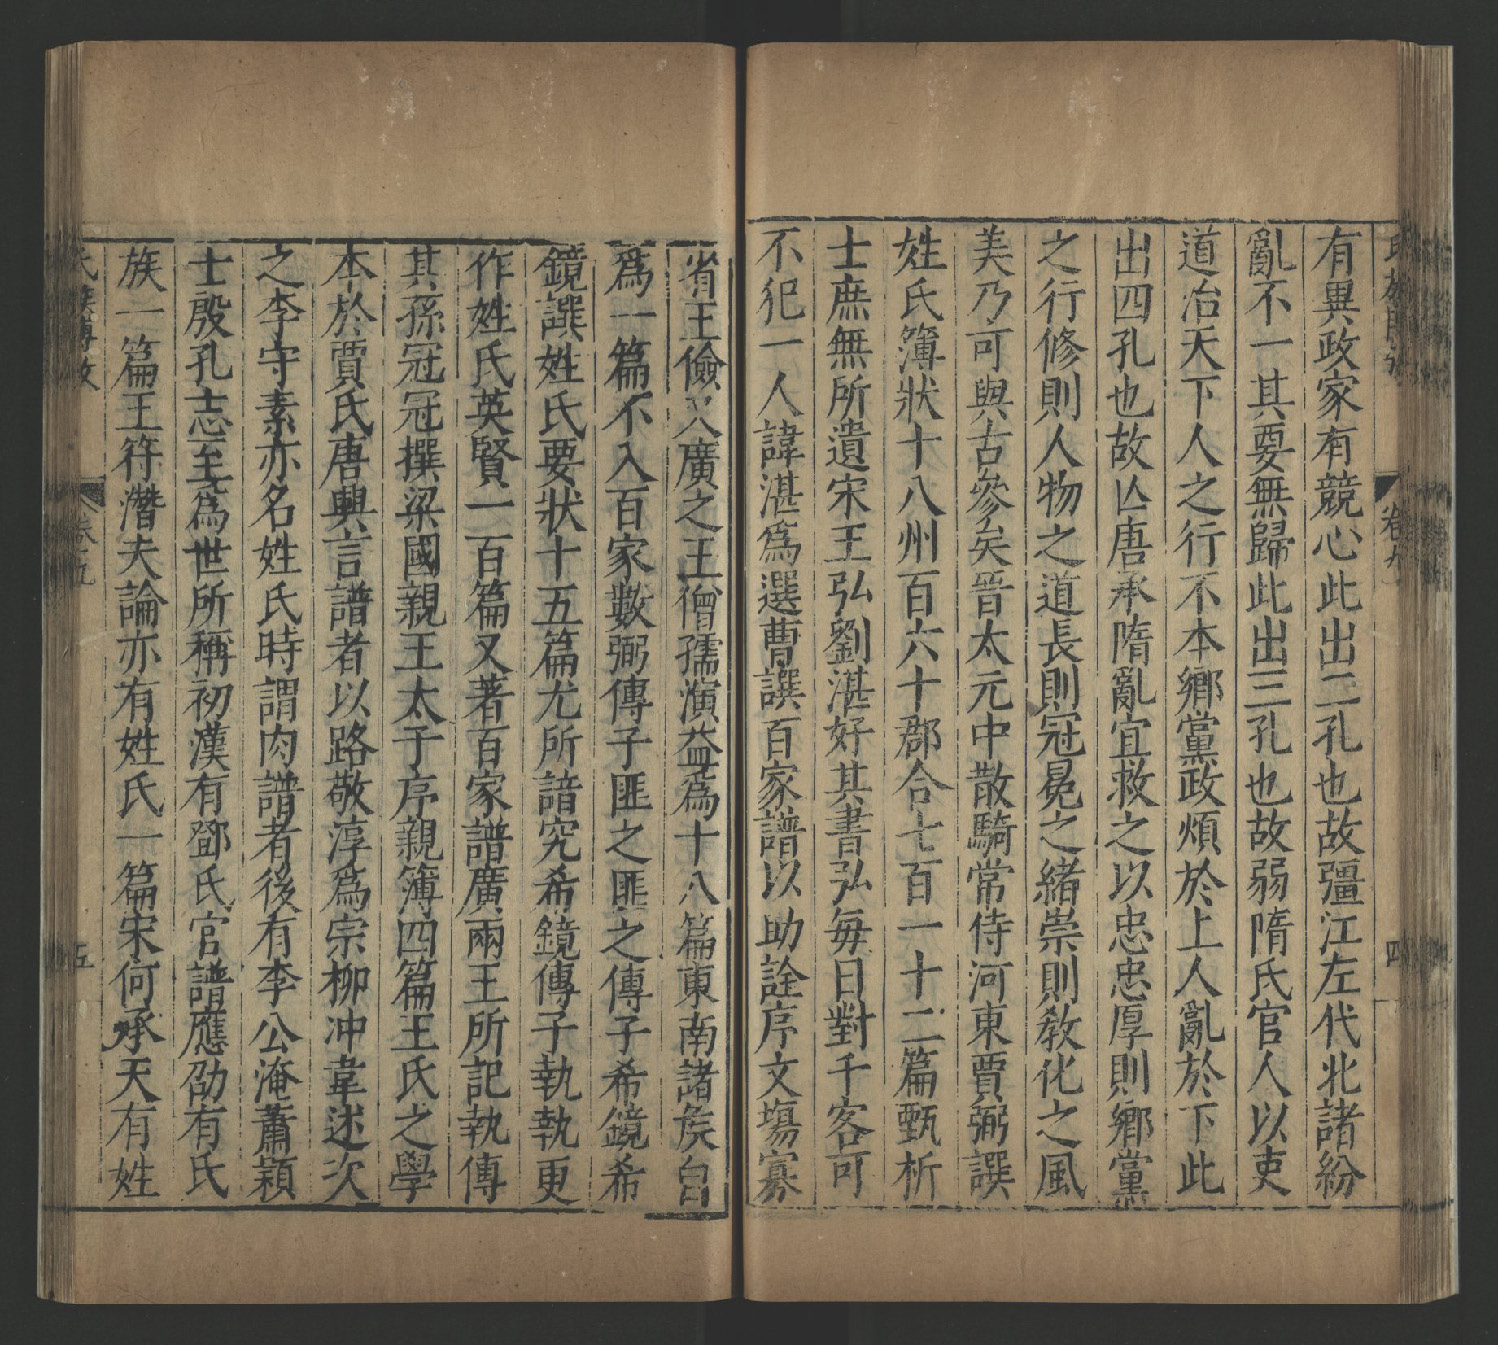 有異政家有競心此出二孔也故彊江左代北諸紛
亂不一其要無歸此出三孔也故弱隋氏官人以吏
道冶天下人之行不本鄉黨政煩於上人亂於下此
出四孔也故亾唐承隋亂宜救之以忠忠厚則鄉黨
之行修則人物之道長則冠冕之緒崇則教化之風
美乃可與古參矣晉太元中散騎常侍河東賈弼譔
姓氏簿狀十八州百六十郡合七百一十二篇甄析
士庶無所遺宋王弘劉湛好其書弘每日對千客可
不犯一人諱湛爲選曹譔百家譜以助詮序文塲寡
省王儉又廣之王僧孺演益爲十八篇東南諸族自
爲一篇不入百家數弼傳子匪之匪之傳子希鏡希
鏡譔姓氏要狀十五篇尤所諳究希鏡傳子執執更
作姓氏英賢一百篇又著百家譜廣兩王所記執傳
其孫冠冠撰梁國親王太子序親簿四篇王氏之學
本於賈氏唐興言譜者以路敬淳爲宗柳冲韋述次
之李守素亦名姓氏時謂肉譜者後有李公淹蕭穎
士殷孔志至爲世所稱初漢有鄧氏官譜應劭有氏
族一篇王符濳夫論亦有姓氏一篇宋何承天有姓
卷五
五